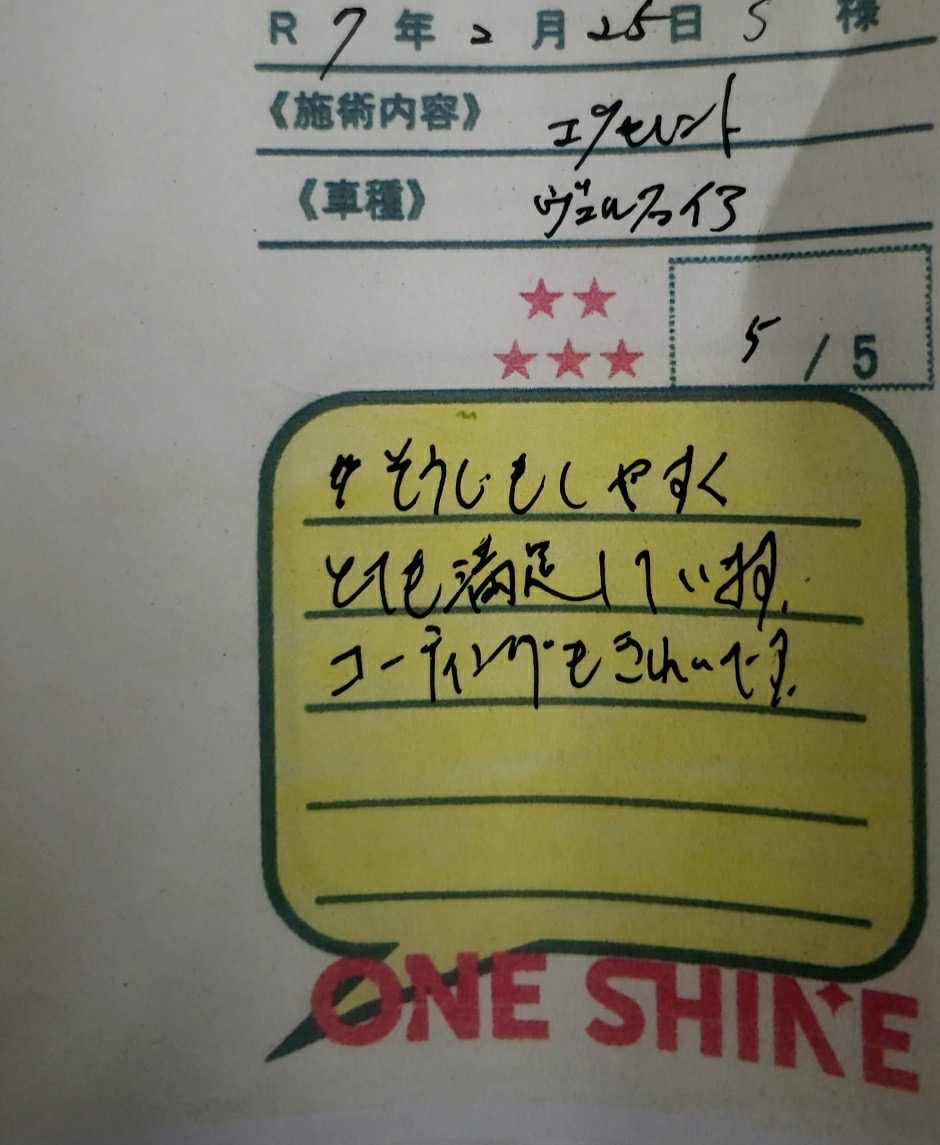 R 7 年 2 月 25 日 S 様
《施術内容》 エクセレント
《車種》 ヴェルファイア
5 / 5
そうじもしやすく
とても満足しています。
コーティングもきれいです。
ONE SHINE